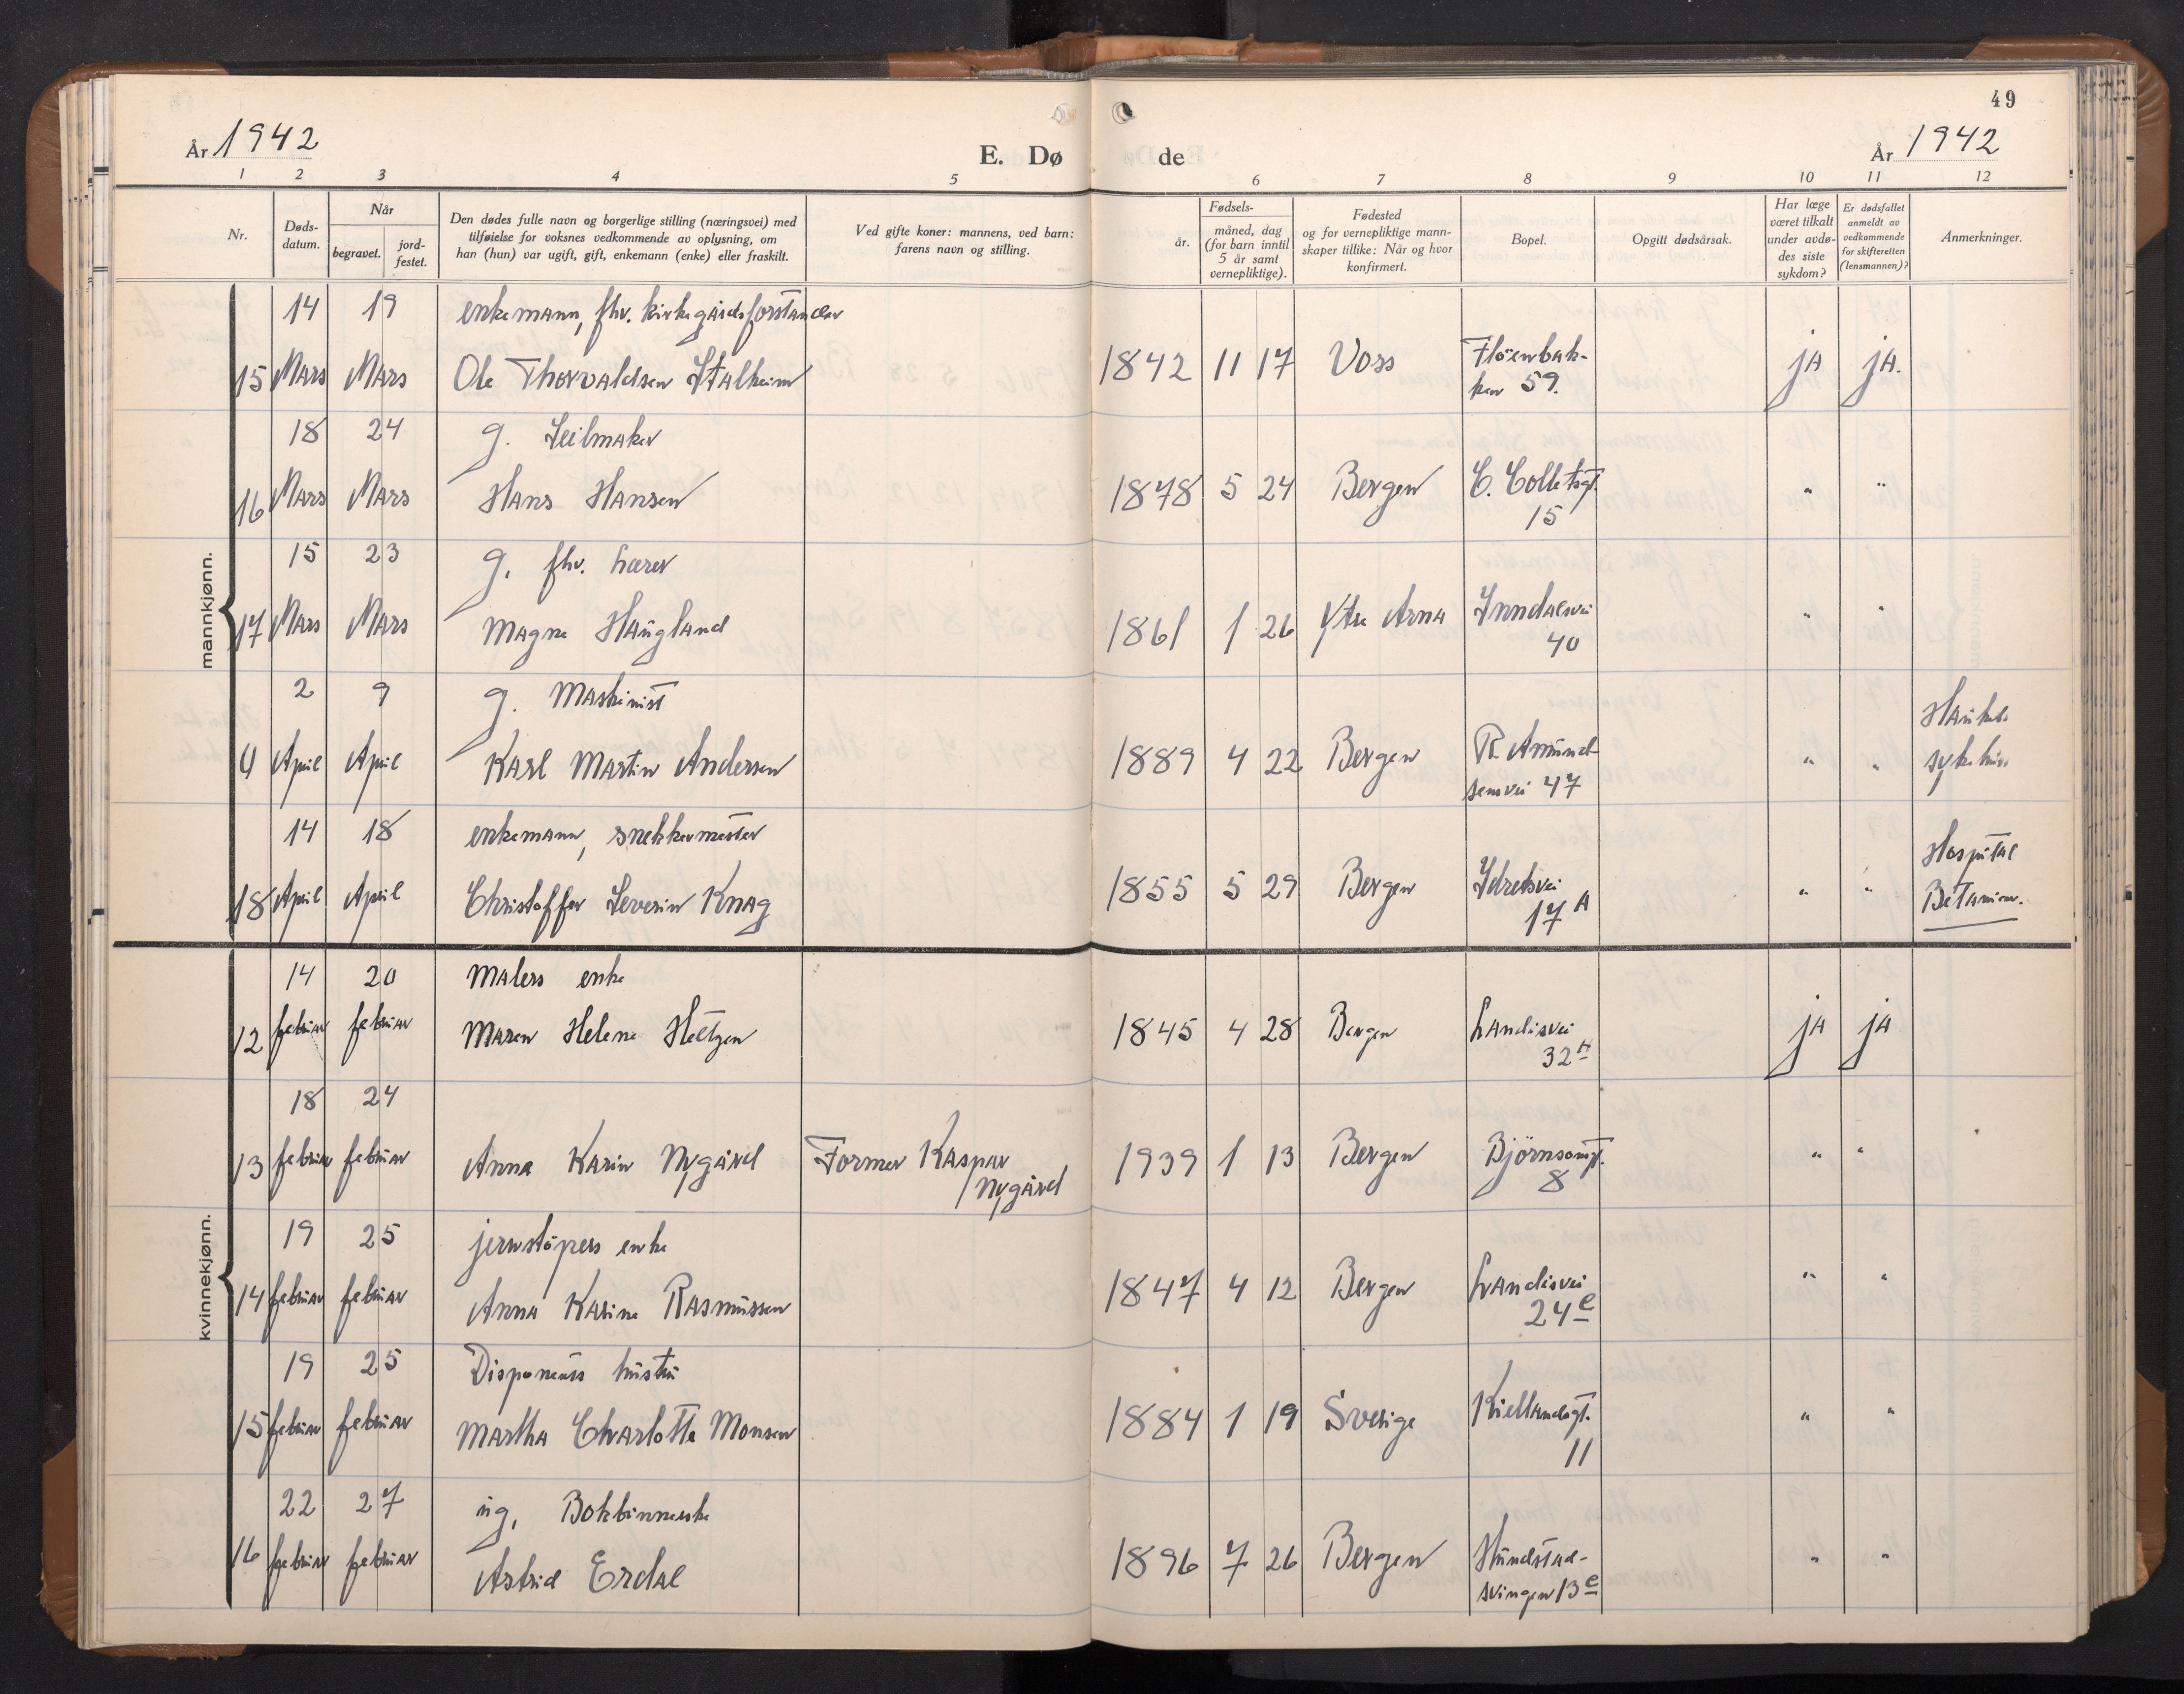 49
År 1942
E. Dø de
År 1942
1 2 3 4 5 6 7 8 9 10 11 12
Nr.
Døds-
datum.
Når
begravet.
jord-
festet.
Den dødes fulle navn og borgerlige stilling (næringsvei) med
tilføielse for voksnes vedkommende av oplysning, om
han (hun) var ugift, gift, enkemann (enke) eller fraskilt.
Ved gifte koner: mannens, ved barn:
farens navn og stilling.
Fødsels-
år.
måned, dag
(for barn inntil
5 år samt
vernepliktige).
Fødested
og for vernepliktige mann-
skaper tillike: Når og hvor
konfirmert.
Bopel.
Opgitt dødsårsak.
Har læge
været tilkalt
under avdø-
des siste
sykdom?
Er dødsfallet
anmeldt av
vedkommende
for skifteretten
(lensmannen)?
Anmerkninger.
mannkjønn.
14 19 enkemann, fhv. kirkegårdsforstander
15 Mars Mars Ole Thorvaldsen Stalheim 1842 11 17 Voss Fløenbak-
ken 59. ja ja.
18 24 g. Seilmaker
16 Mars Mars Hans Hansen 1878 5 24 Bergen C. Colletsgt.
15 " "
15 23 g. fhv. lærer
17 Mars Mars Magne Haugland 1861 1 26 Ytre Arna Inndalsvei
40 " "
2 9 g. Maskinist
4 April April Karl Martin Andersen 1889 4 22 Bergen R. Amund-
sensvei 47 " " Haukel.
sykehus
14 18 enkemann, snekkermester
18 April April Christoffer Severin Knag 1855 5 29 Bergen Idretsvei
17 A " " Hospital
Betanien.
kvinnekjønn.
14 20 Malers enke
12 februar februar Maren Helene Heltzen 1845 4 28 Bergen Landåsvei
32 A ja ja
18 24
13 februar februar Anna Karin Nygård Former Kaspar
Nygård 1939 1 13 Bergen Bjørnsonsgt.
8 " "
19 25 jernstøpers enke
14 februar februar Anna Karine Rasmussen 1847 4 12 Bergen Landåsvei
24 e " "
19 25 Disponents hustru
15 februar februar Martha Charlotte Monsen 1884 1 19 Sverige Kiellandsgt.
11 " "
22 27 ug, Bokbinnerske
16 februar februar Astrid Erdal 1896 7 26 Bergen Hundstad-
svingen 13 e " "